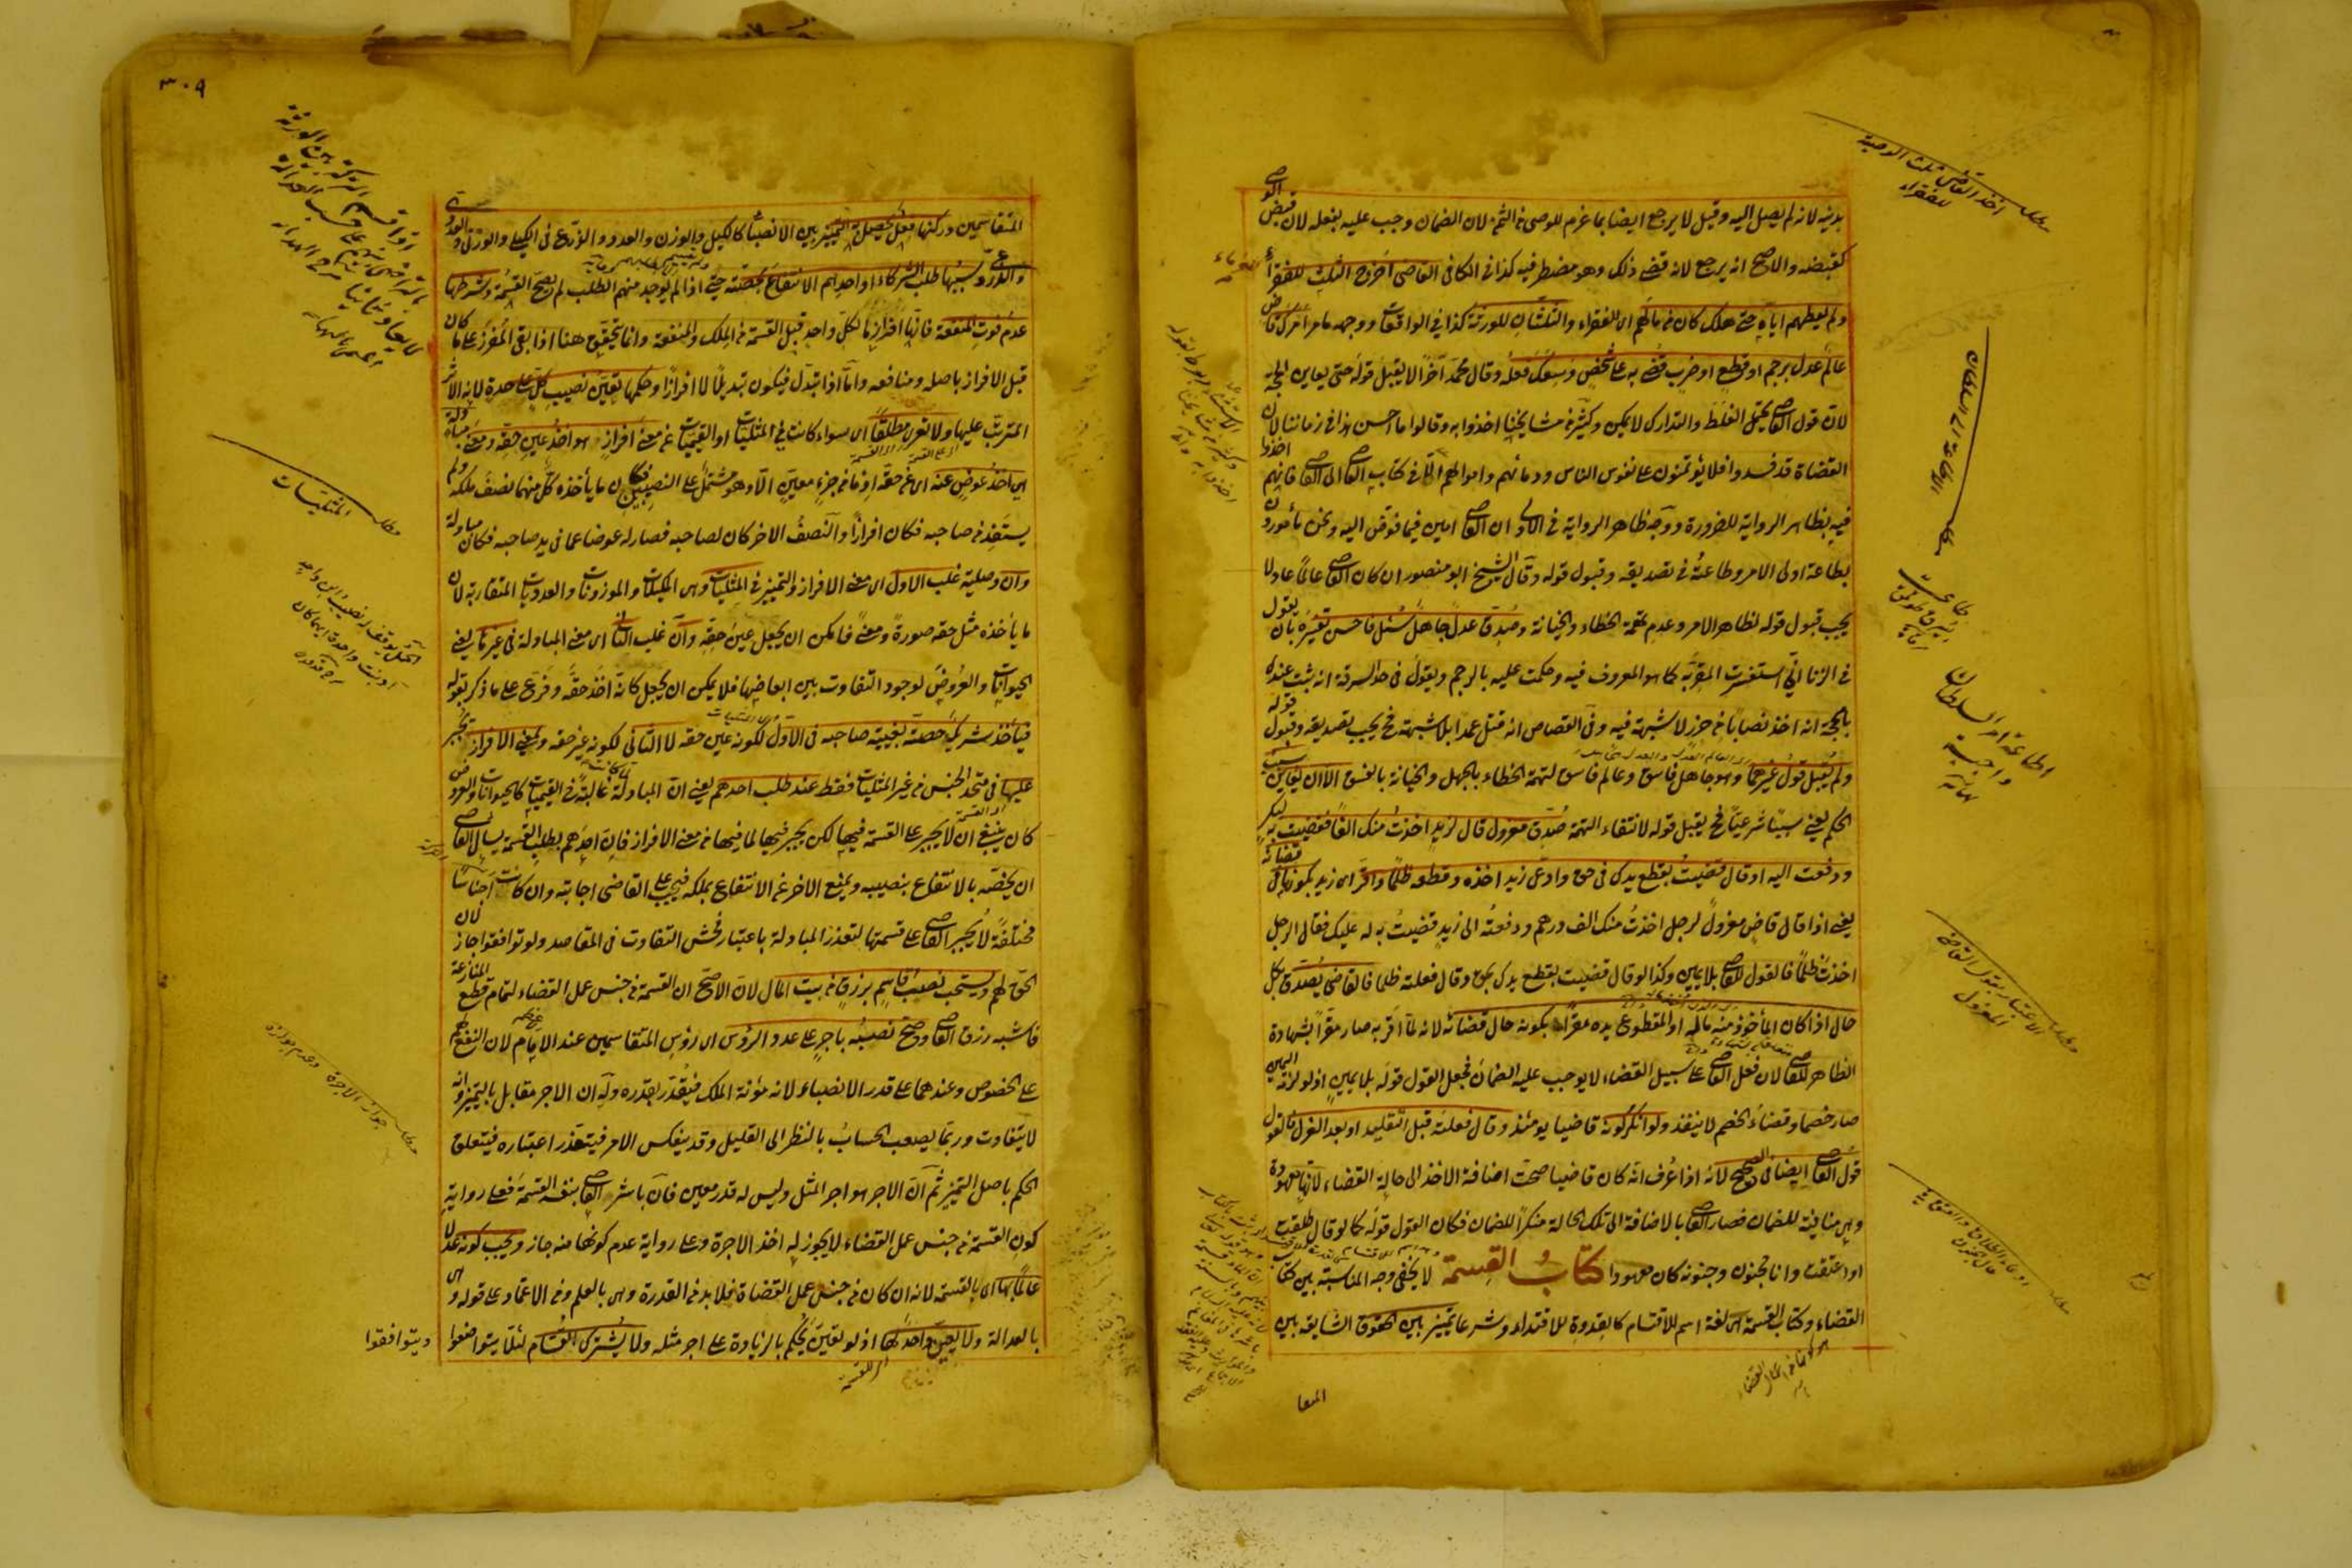 بدينه لانه لم يصل اليه وقيل لا يرجع ايضا بما غرم للوصى فى الثمن لان الضمان وجب عليه بفعله لان قبض الوصى
كقبضه والاصح انه يرجع لانه قضى ذلك وهو مضطر فيه كذا فى الكافى القاضى اخرج الثلث للفقراء
ولم يعطهم اياه حتى هلك كان فى مالهم اى الفقراء والثلثان للورثة كذا فى الواقعات ووجهه ما مر امرك قاض
عالم عدل برجم او قطع او ضرب قضى به على شخص وسعك فعله وقال محمد آخرا لا يقبل قوله حتى يعاين الحجة
لان قول القاضى يحتمل الغلط والتدارك لا يمكن وكثير من مشايخنا اخذوا به وقالوا ما احسن هذا فى زماننا لان
القضاة قد فسدوا فلا يؤتمنون على نفوس الناس ودمائهم واموالهم الا فى كتاب القاضى الى القاضى فانهم اخذوا
فيه بظاهر الرواية للضرورة ووجه ظاهر الرواية فى الاول ان القاضى امين فيما فوض اليه ونحن مأمورون
بطاعة اولى الامر وطاعته فى تصديقه وقبول قوله وقال الشيخ ابو منصور ان كان القاضى عالما عادلا
يجب قبول قوله لظاهر الامر وعدم تهمة الخطاء والخيانة وصدق عدل جاهل سئل فاحسن تفسيره بان يقول
فى الزنا انى استفسرت المقر به كما هو المعروف فيه وحكمت عليه بالرجم ويقول فى حد السرقة انه ثبت عنده
بالحجة انه اخذ نصابا من حرز لا شبهة فيه وفى القصاص انه قتل عمدا بلا شبهة فح يجب تصديقه وقبول قوله
ولم يقبل قول غيرهما وهو جاهل فاسق وعالم فاسق لتهمة الخطاء بالجهل والخيانة بالفسق الا ان يعاين سبب
الحكم يعنى سببا شرعيا فح يقبل قوله لانتفاء التهمة صدق معزول قال لزيد اخذت منك الفا قضيت به لبكر
ودفعت اليه او قال قضيت بقطع يدك فى حق وادعى زيد اخذه وقطعه ظلما واقر اى زيد بكونهما فى قضائه
يعنى اذا قال قاض معزول لرجل اخذت منك الف درهم ودفعته الى زيد قضيت به له عليك فقال الرجل
اخذت ظلما فالقول للقاضى بلا يمين وكذا لو قال قضيت بقطع يدك بحق وقال فعلته ظلما فالقاضى يصدق بكل
حال اذا كان المأخوذ منه ماله او المقطوع يده مقرا بكونه حال قضائه لانه لما اقر به صار مقرا بشهادة
الظاهر للقاضى لان فعل القاضى على سبيل القضاء لا يوجب عليه الضمان فجعل القول قوله بلا يمين اذ لو لزمه اليمين
صار خصما وقضاء الخصم لا ينفذ ولو انكر كونه قاضيا يومئذ وقال فعلته قبل التقليد او بعد العزل فالقول
قول القاضى ايضا فى الصحيح لانه اذا عرف انه كان قاضيا صحت اضافة الاخذ الى حالة القضاء لانها معهودة
وهى منافية للضمان فصار القاضى بالاضافة الى تلك الحالة منكرا للضمان فكان القول قوله كما لو قال طلقت
او اعتقت وانا مجنون وجنونه كان معهودا كتاب القسمة لا يخفى وجه المناسبة بين كتاب
القضاء وكتاب القسمة هى لغة اسم للاقتسام كالقدوة للاقتداء وشرعا تمييز بين الحقوق الشايعة بين
المتقا
مطلب اخذ القاضى ثلث الوصية للفقراء
اطاعة امر السلطان واجبة
مطلب الاعتبار بقول القاضى المعزول
٣٠٩
المتقاسمين وركنها فعل يحصل به التمييز بين الانصباء كالكيل والوزن والعدد والذرع فى الكيلى والوزنى والعددى
والذرعى وسببها طلب الشركاء او احدهم الانتفاع بحصته حتى اذا لم يوجد منهم الطلب لم تصح القسمة وشرطها
عدم فوت المنفعة فانها افراز ما لكل واحد قبل القسمة من الملك والمنفعة وانما يتحقق هذا اذا بقى المفرز على ما كان
قبل الافراز باصله ومنافعه واما اذا تبدل فيكون تبديلا لا افرازا وحكمها تعين نصيب كل على حدة لانه الاثر
المترتب عليها ولا تعرى مطلقا اى سواء كانت فى المثليات او القيميات عن معنى افراز هو اخذ عين حقه ومعنى مبادلة
هى اخذ عوض عنه اى عن حقه اذ ما من جزء معين الا وهو مشتمل على النصيبين فكان ما يأخذه كل منهما نصف ملكه ولم
يستفد من صاحبه فكان افرازا والنصف الاخر كان لصاحبه فصار له عوضا عما فى يد صاحبه فكان مبادلة
وان وصلية غلب الاول اى معنى الافراز والتمييز فى المثليات وهى المكيلات والموزونات والعدديات المتقاربة لان
ما يأخذه مثل حقه صورة ومعنى فامكن ان يجعل عين حقه وان غلب الثانى اى معنى المبادلة فى غيرها يعنى
الحيوانات والعروض لوجود التفاوت بين ابعاضها فلا يمكن ان يجعل كانه اخذ حقه وفرع على ما ذكر بقوله
فيأخذ شريك حصته بغيبة صاحبه فى الاول لكونه عين حقه لا الثانى لكونه غير حقه ولمعنى الافراز يجبر
عليها فى متحد الجنس من غير المثليات فقط عند طلب احدهم يعنى ان المبادلة لما كانت غالبة فى القيميات كالحيوانات والعروض
كان ينبغى ان لا يجبر على القسمة فيها لكن يجبر فيها لما فيها من معنى الافراز فان احدهم بطلب القسمة يسأل القاضى
ان يخصه بالانتفاع بنصيبه ويمنع الاخر عن الانتفاع بملكه فيجب على القاضى اجابته وان كانت اجناسا
مختلفة لا يجبر القاضى على قسمتها لتعذر المبادلة باعتبار فحش التفاوت فى المقاصد ولو توافقوا جاز لان
الحق لهم ويستحب نصب قاسم يرزق من بيت المال لان الاصح ان القسمة من جنس عمل القضاء لتمام قطع المنازعة
فاشبه رزق القاضى وصح نصبه باجر على عدد الرؤس اى رؤس المتقاسمين عند الامام لان النفع لهم
على الخصوص وعندهما على قدر الانصباء لانه مؤنة الملك فيقدر بقدره وله ان الاجر مقابل بالتمييز وانه
لا يتفاوت وربما يصعب الحساب بالنظر الى القليل وقد ينعكس الامر فيتعذر اعتباره فيتعلق
الحكم باصل التمييز ثم ان الاجر هو اجر المثل وليس له قدر معين فان باشر القاضى بنفسه القسمة فعلى رواية
كون القسمة من جنس عمل القضاء لا يجوز له اخذ الاجرة وعلى رواية عدم كونها منه جاز ويجب كونه عدلا
عالما بها اى بالقسمة لانه ان كان من جنس عمل القضاة فلا بد من القدرة وهى بالعلم ومن الاعتماد على قوله وهى
بالعدالة ولا يعين واحد لها اذ لو تعين يحكم بالزيادة على اجر مثله ولا يشترك القسام لئلا يتواضعوا
ويتوافقوا
مطلب المثليات
مطلب جواز الاجرة وعدم جوازه